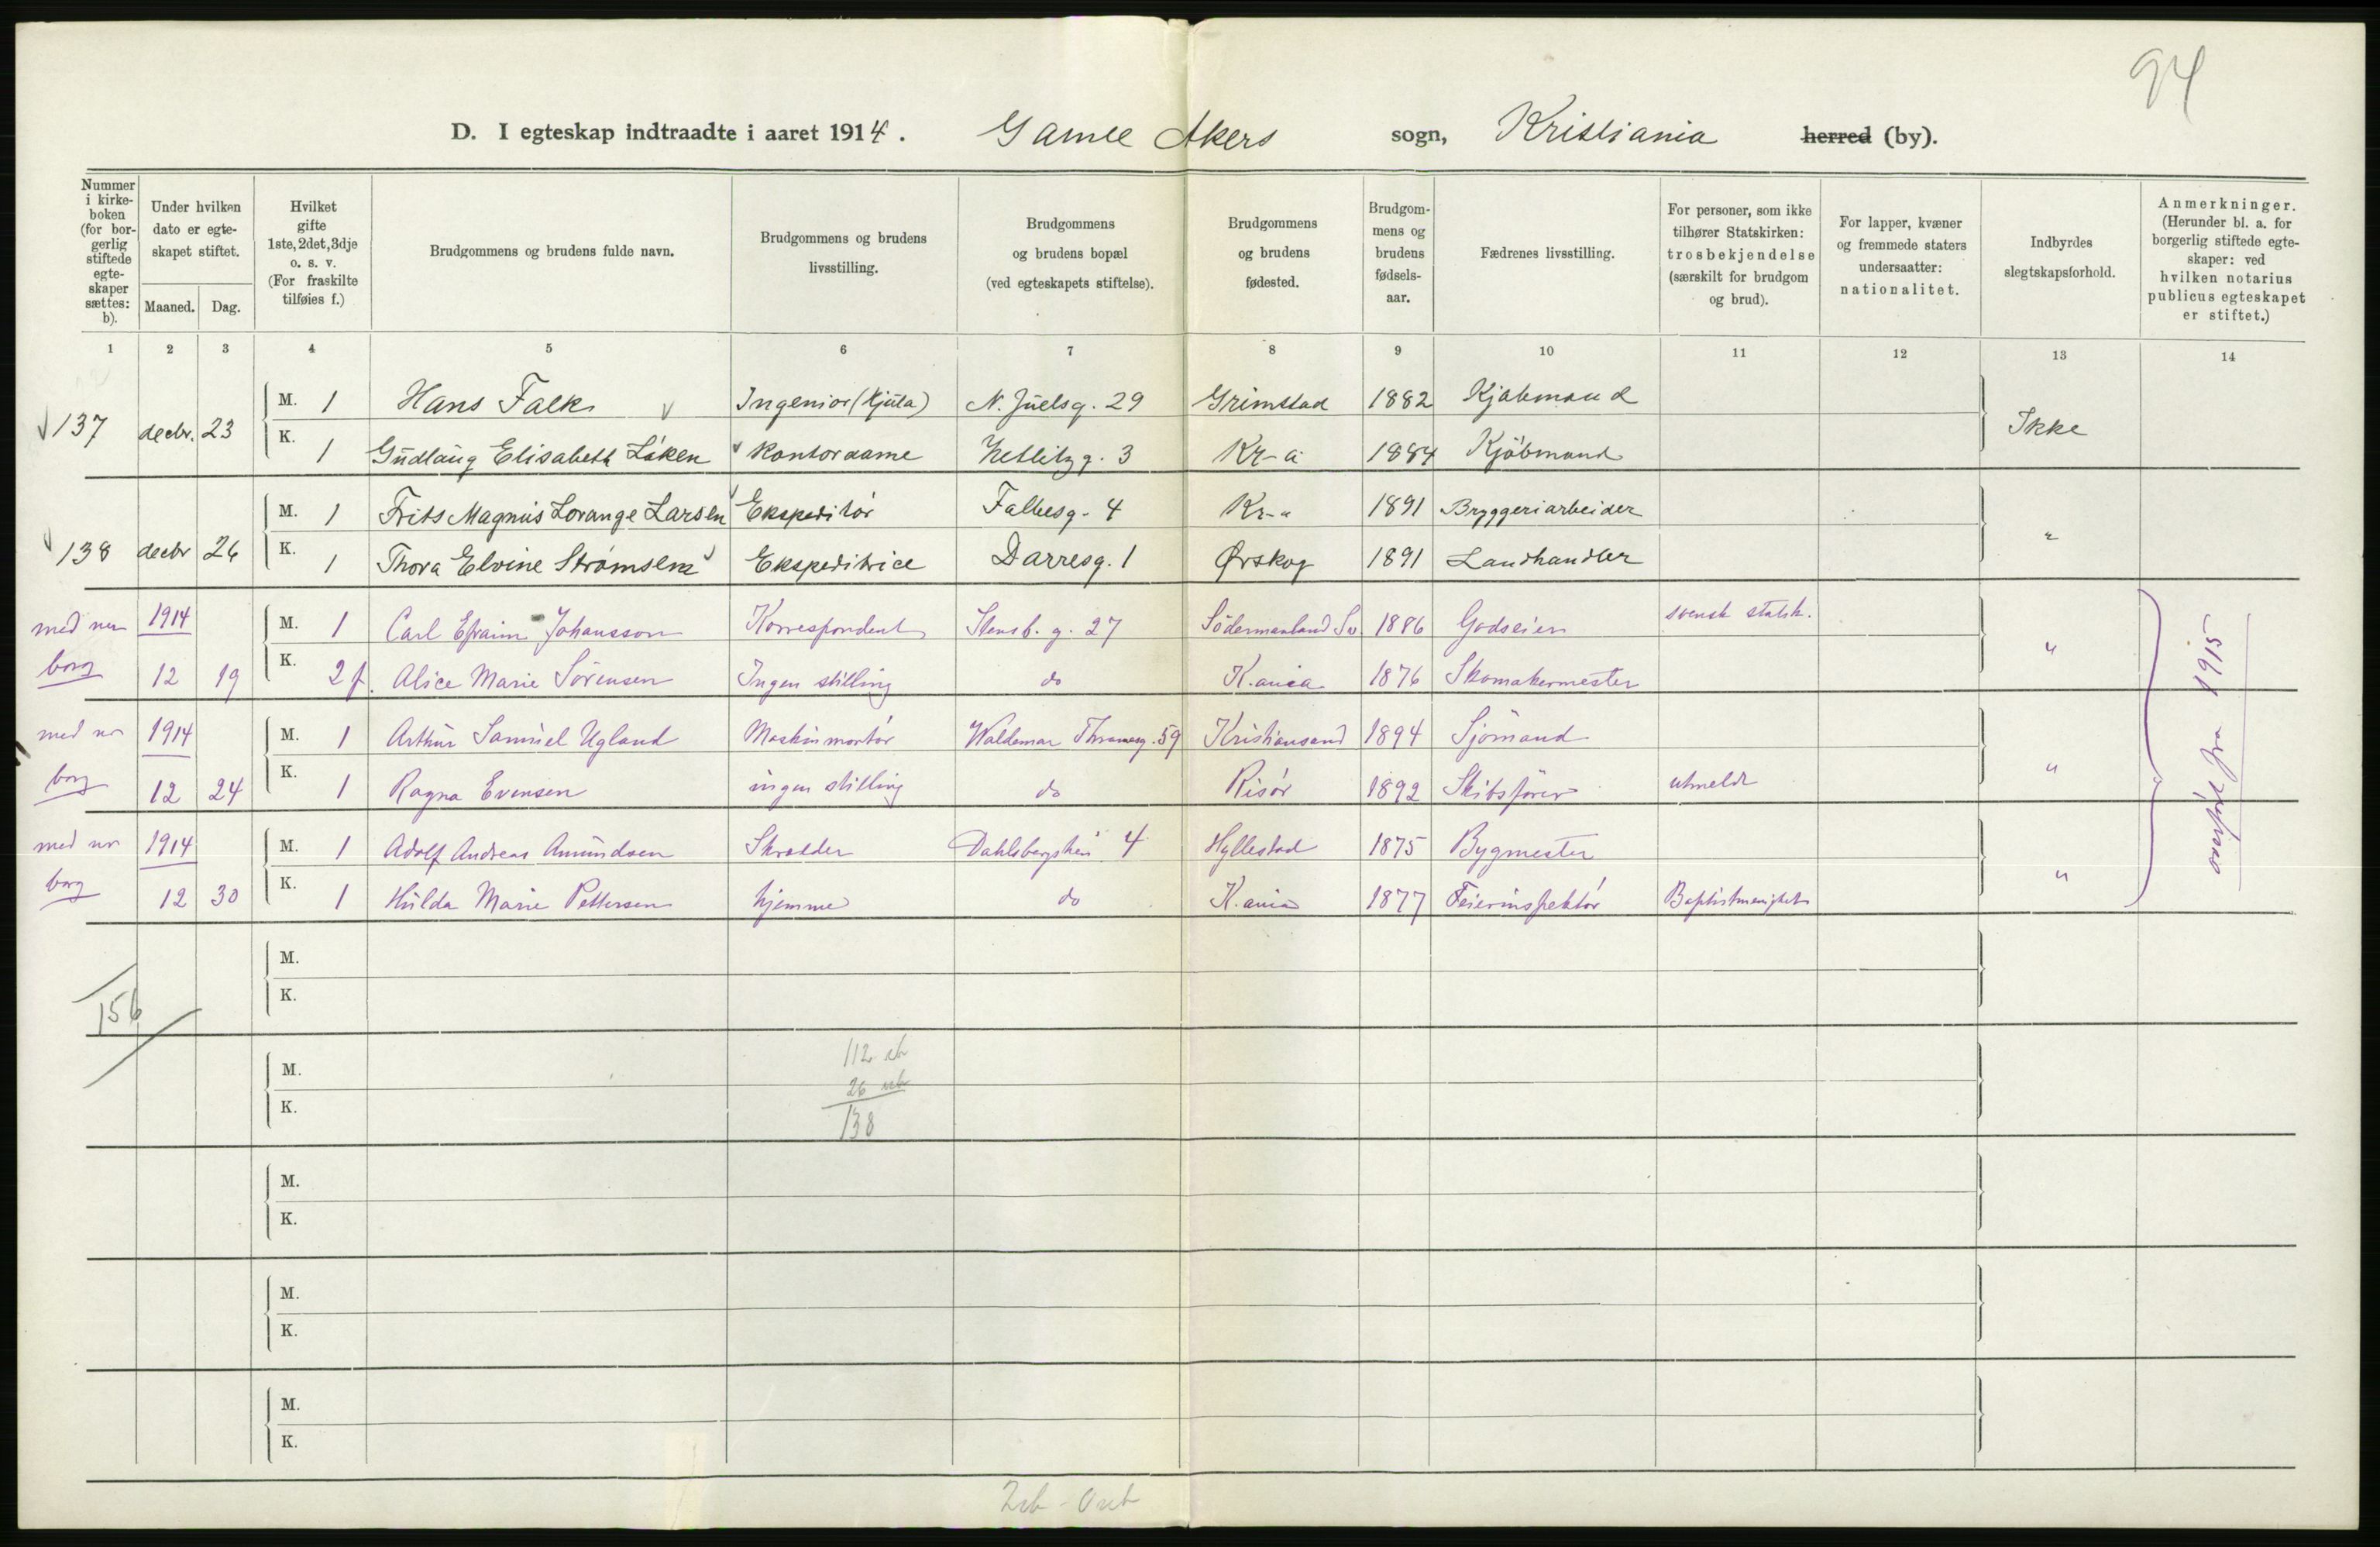 94
D. I egteskap indtraadte i aaret 1914. Gamle Akers sogn, Kristiania herred (by).
Nummer i kirkeboken (for borgerlig stiftede egteskaper sættes: b).
Under hvilken dato er egteskapet stiftet.
Maaned. Dag.
Hvilket gifte 1ste, 2det, 3dje o. s. v. (For fraskilte tilføies f.)
Brudgommens og brudens fulde navn.
Brudgommens og brudens livsstilling.
Brudgommens og brudens bopæl (ved egteskapets stiftelse).
Brudgommens og brudens fødested.
Brudgommens og brudens fødselsaar.
Fædrenes livsstilling.
For personer, som ikke tilhører Statskirken: trosbekjendelse (særskilt for brudgom og brud).
For lapper, kvæner og fremmede staters undersaatter: nationalitet.
Indbyrdes slegtskapsforhold.
Anmerkninger. (Herunder bl. a. for borgerlig stiftede egteskaper: ved hvilken notarius publicus egteskapet er stiftet.)
1 2 3 4 5 6 7 8 9 10 11 12 13 14
M. 1 Hans Falk Ingeniør (Kjula) N. Juelsg. 29 Grimstad 1882 Kjøbmand
137 decbr. 23 Ikke
K. 1 Gudlaug Elisabeth Løken Kontordame Hetlitzg. 3 Kr-a 1884 Kjøbmand
M. 1 Frits Magnus Lorange Larsen Ekspeditør Falbesg. 4 Kr-a 1891 Bryggeriarbeider
138 decbr 26 "
K. 1 Thora Elvine Strømsem Ekspeditrice Darresg. 1 Ørskog 1891 Landhandler
med nr 1914 M. 1 Carl Efraim Johansson Korrespondent Stensb. g. 27 Södermanland Sv. 1886 Godseier svensk statsk.
borg 12 19 K. 2 f. Alice Marie Sörensen Ingen stilling do K.ania 1876 Skomakermester "
med nr 1914 M. 1 Arthur Samuel Ugland Maskinmontör Waldemar Thranesg. 59 Kristiansand 1894 Sjömand
borg 12 24 K. 1 Ragna Evensen ingen stilling do Risör 1892 Skibsförer utmeldt "
med nr 1914 M. 1 Adolf Andreas Amundsen Skrædder Dahlsbergstien 4 Hyllestad 1875 Bygmester
borg 12 30 K. 1 Hulda Marie Pettersen hjemme do K.ania 1877 Feierinspektör Baptistmenighet "
overført fra 1915
M.
K.
156
M.
K.
112 eb
26 utb
138
M.
K.
M.
K.
M.
K.